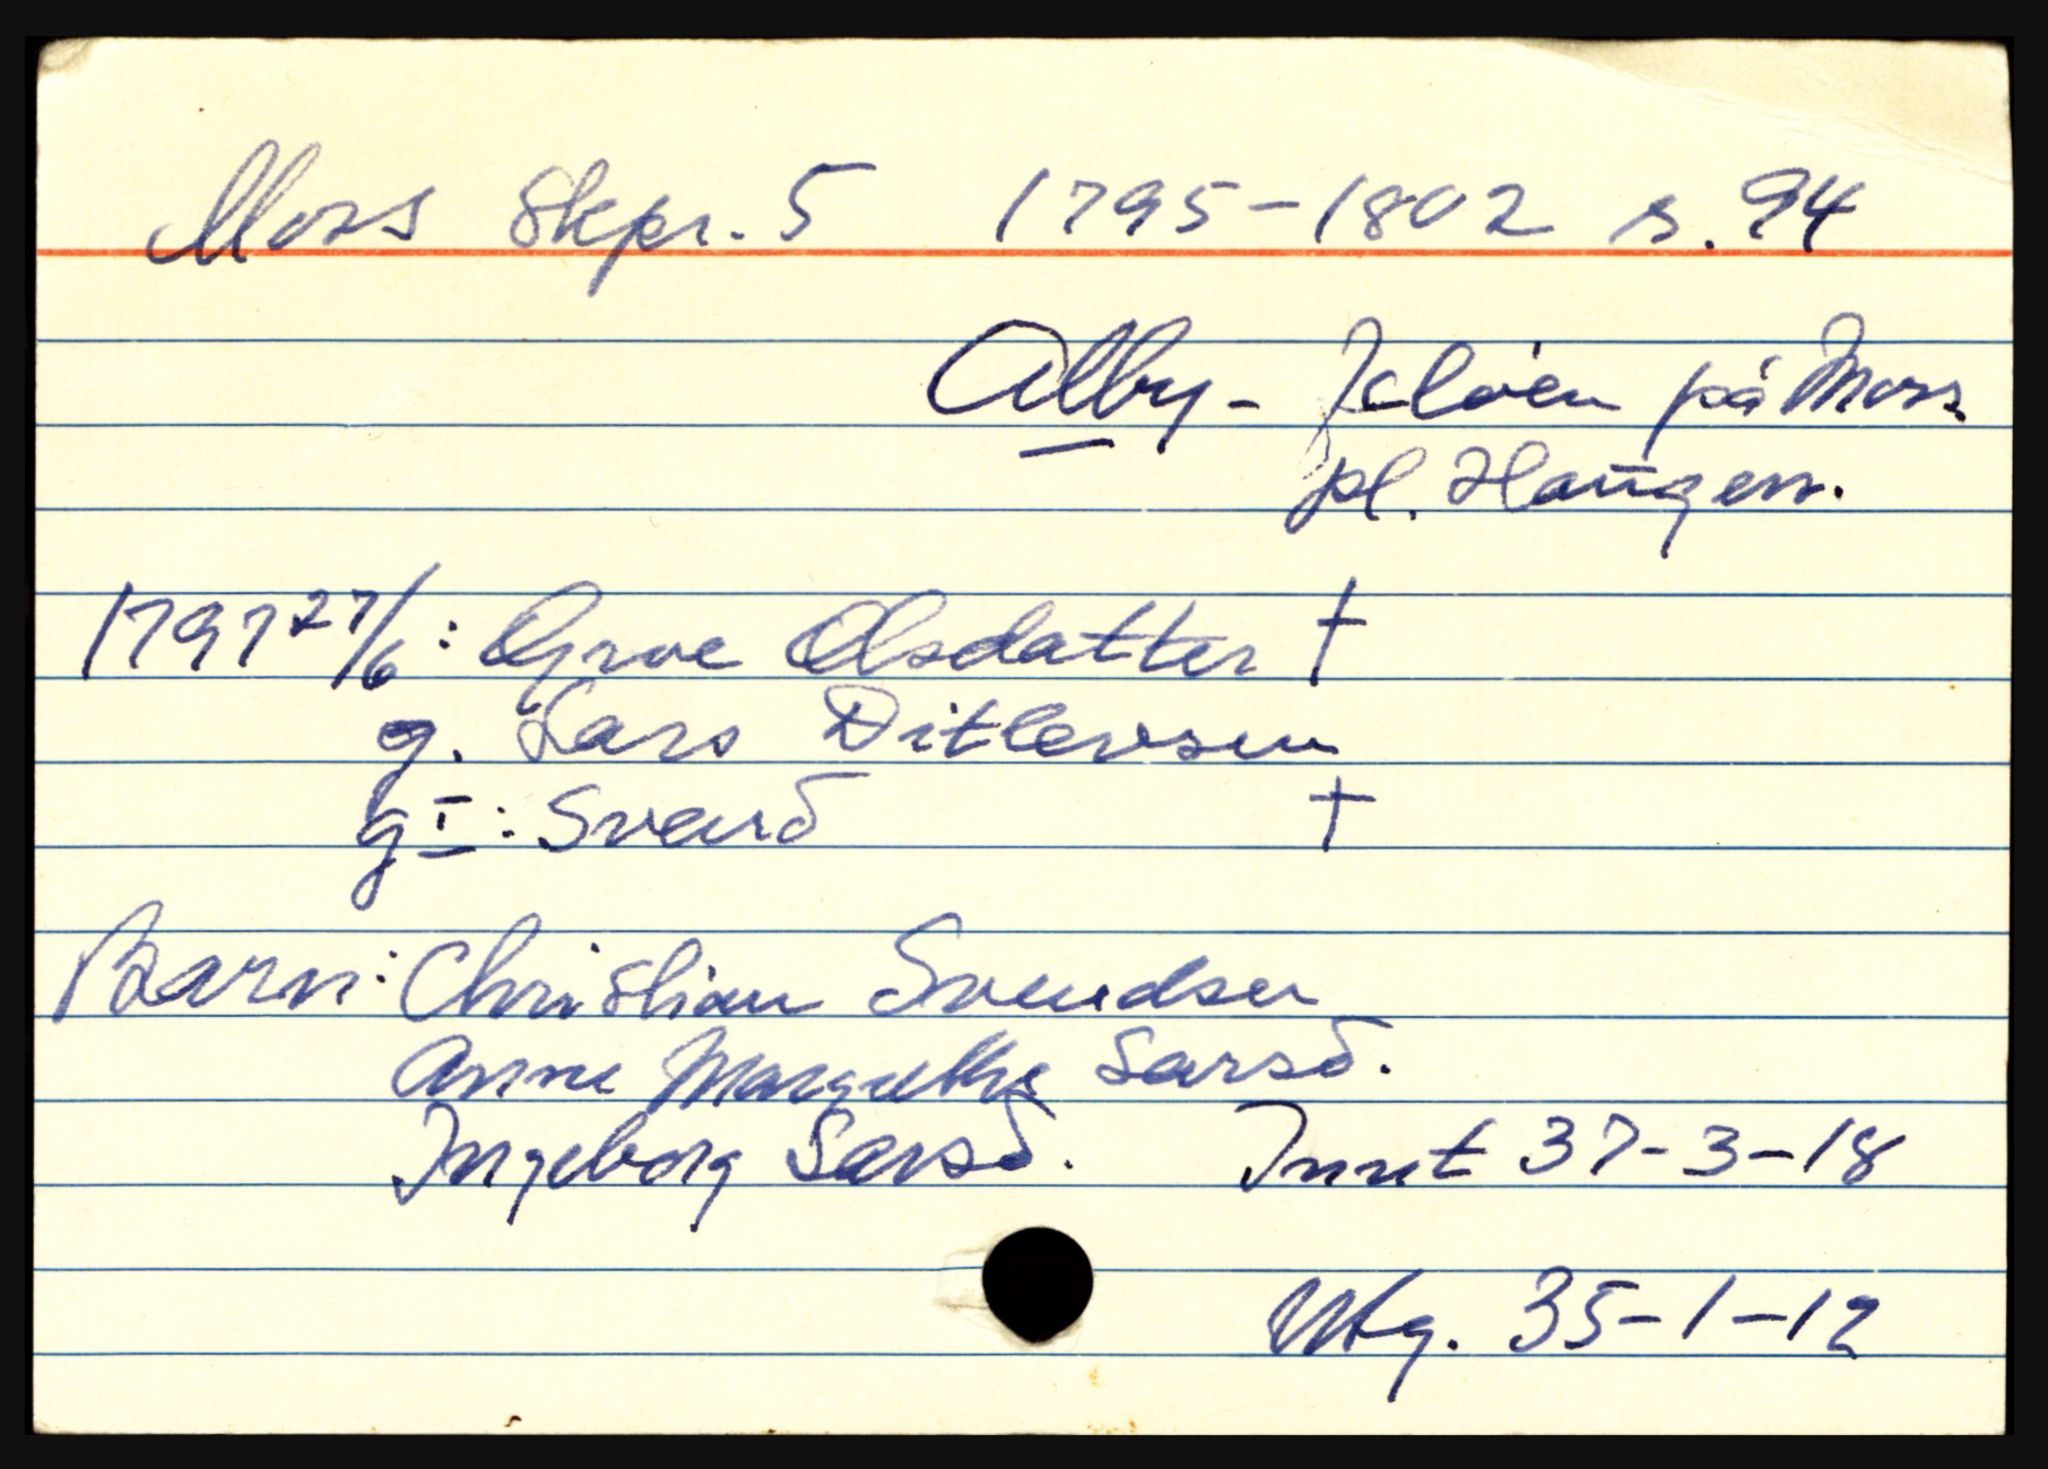 Moss Skpr. 5 1795-1802 s. 94
Alby - Jeløen på Moss.
pl. Haugen.
1797 27/6: Groe Olsdatter †
g. Lars Ditlevsen
g I: Svend †
Barn: Christian Svendsen
Anne Margrethe Larsd.
Ingeborg Larsd. Innt 37-3-18
Utg. 35-1-12